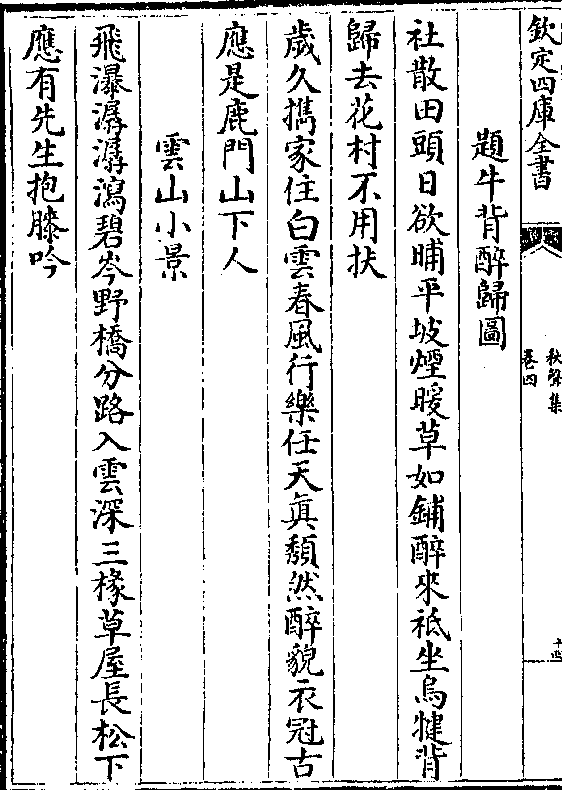 欽定四庫全書
秋聲集
卷四
十四
題牛背醉歸圖
社散田頭日欲晡平坡煙暖草如鋪醉來祗坐烏犍背
歸去花村不用扶
歲久擕家住白雲春風行樂任天真頽然醉貌衣冠古
應是鹿門山下人
雲山小景
飛瀑潺潺瀉碧岑野橋分路入雲深三椽草屋長松下
應有先生抱膝吟